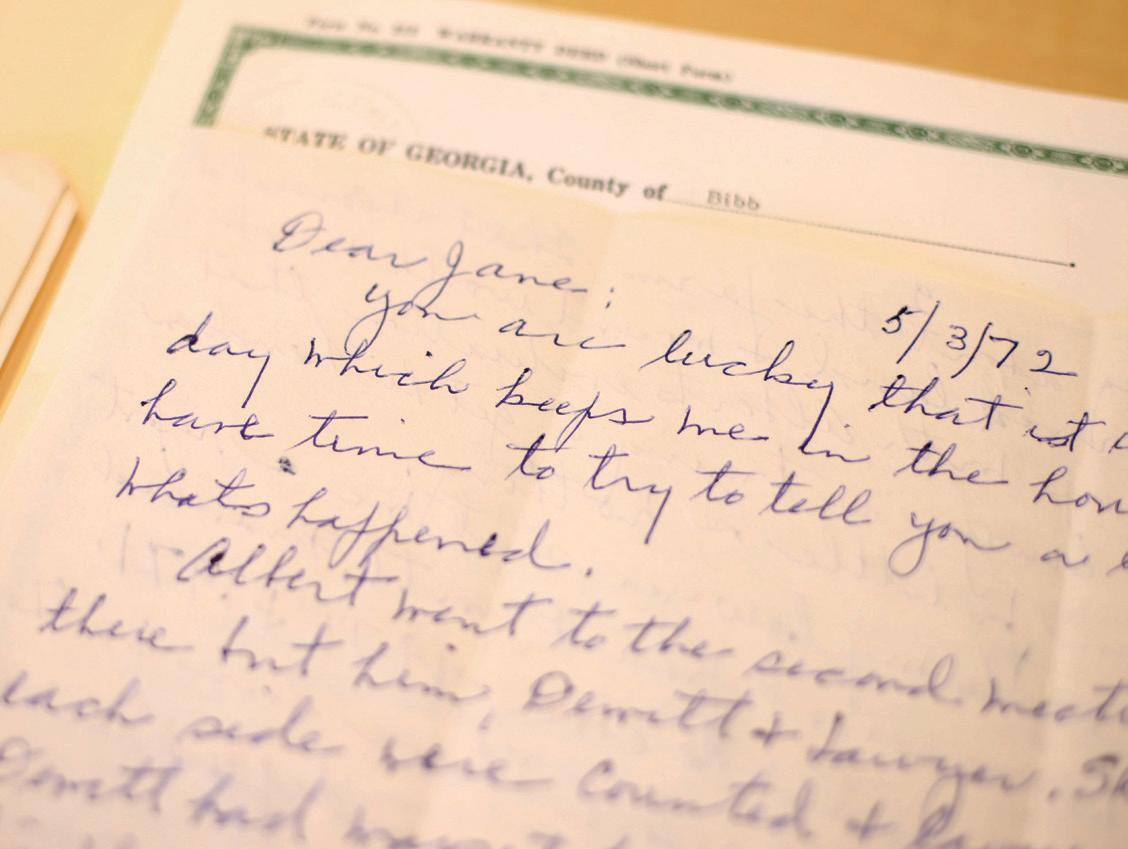 Form No. WARRANTY DEED (Short Form)
STATE OF GEORGIA, County of Bibb
Dear Jane:
5/3/72
you are lucky that ist
day which keeps me in the
have time to try to tell you a
whats happened.
Albert went to the second
there but him, Dewitt & Lawyer.
each side were counted &
Dewitt had